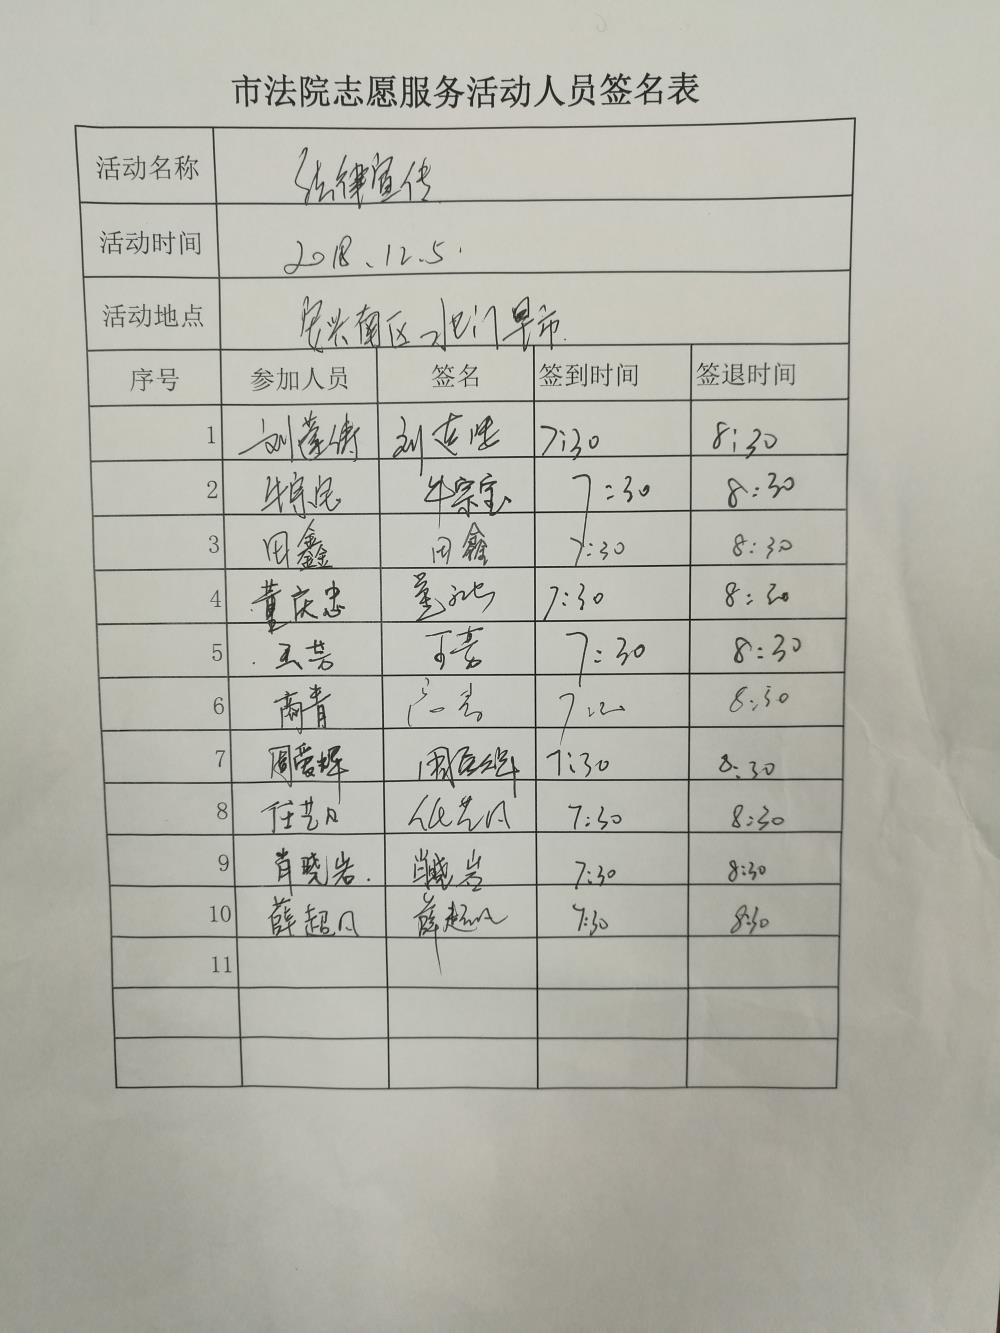 市法院志愿服务活动人员签名表
活动名称 法律宣传
活动时间 2018.12.5.
活动地点 宏兴南区 北门早市
序号 参加人员 签名 签到时间 签退时间
1 刘 刘 7:30 8:30
2 牛宗宝 牛宗宝 7:30 8:30
3 田鑫 田鑫 7:30 8:30
4 董庆忠 董 7:30 8:30
5 王芳 8:30 7:30
6 商青 7 8:30
7 周爱辉 周爱辉 7:30 8:30
8 任艺凡 任艺凡 7:30 8:30
9 肖晓岩. 肖晓岩 7:30 8:30
10 薛超凡 薛超凡 7:30 8:30
11